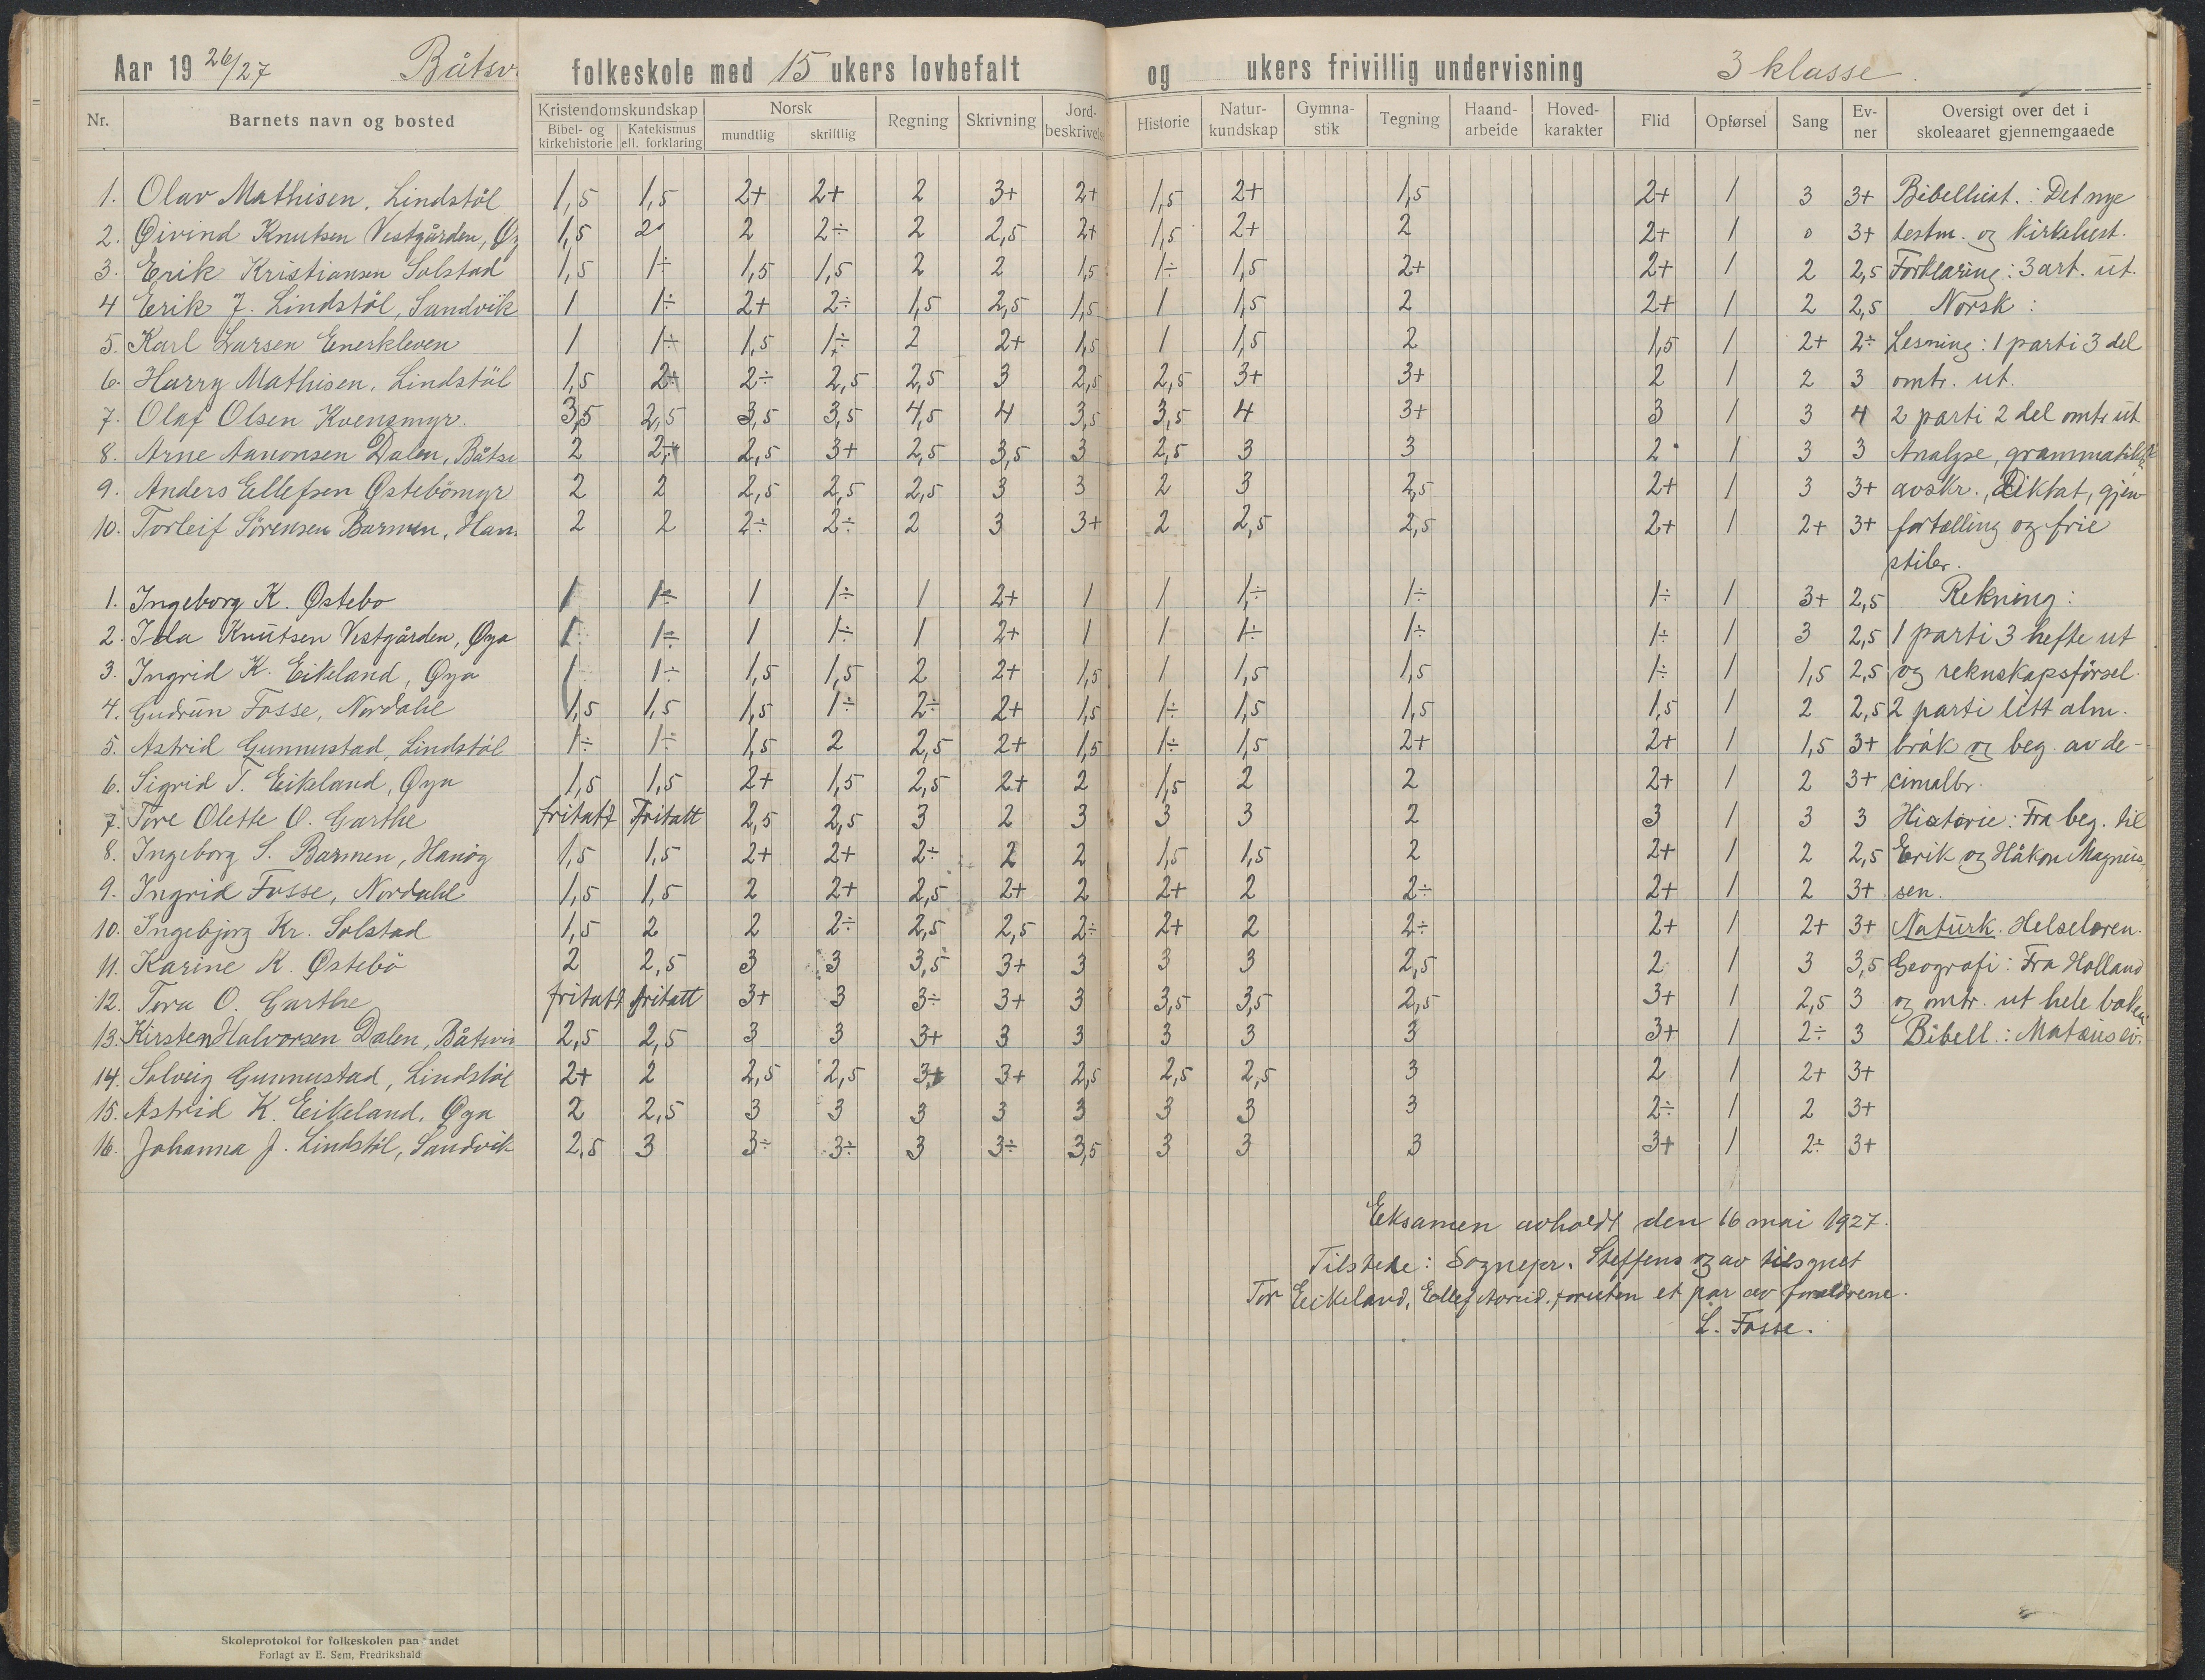 Aar 19 26/27 Båtsv folkeskole med 15 ukers lovbefalt og ukers frivillig undervisning 3 klasse.
Nr. Barnets navn og bosted Kristendomskundskap Bibel- og kirkehistorie Katekismus ell. forklaring Norsk mundtlig skriftlig Regning Skrivning Jord-beskrivelse Historie Natur-kundskap Gymna-stik Tegning Haand-arbeide Hoved-karakter Flid Opførsel Sang Ev-ner Oversigt over det i skoleaaret gjennemgaaede
1. Olav Mathisen, Lindstöl 1,5 1,5 2+ 2+ 2 3+ 2+ 1,5 2+ 1,5 2+ 1 3 3+ Bibelhist. : Det nye
2. Øivind Knutsen Vestgården, Øy 1,5 2 2 2÷ 2 2,5 2+ 1,5 2+ 2 2+ 1 0 3+ testm. og kirkehist.
3. Erik Kristiansen Solstad 1,5 1÷ 1,5 1,5 2 2 1,5 1÷ 1,5 2+ 2+ 1 2 2,5 Forklaring : 3 art. ut.
4 Erik J. Lindstöl, Sandvik 1 1÷ 2+ 2÷ 1,5 2,5 1,5 1 1,5 2 2+ 1 2 2,5 Norsk :
5. Karl Larsen Enerkleven 1 1÷ 1,5 1÷ 2 2+ 1,5 1 1,5 2 1,5 1 2+ 2÷ Lesning : 1 parti 3 del
6. Harry Mathisen, Lindstöl 1,5 2+ 2÷ 2,5 2,5 3 2,5 2,5 3+ 3+ 2 1 2 3 omtr. ut.
7. Olaf Olsen Kvensmyr. 3,5 2,5 3,5 3,5 4,5 4 3,5 3,5 4 3+ 3 1 3 4 2 parti 2 del omtr ut
8. Arne Aanonsen Dalen, Båtsv 2 2÷ 2,5 3+ 2,5 3,5 3 2,5 3 3 2 1 3 3 Analyse, grammatikk
9. Anders Ellefsen Østebömyr 2 2 2,5 2,5 2,5 3 3 2 3 2,5 2+ 1 3 3+ avskr., Diktat, gjen
10. Torleif Sörensen Barmen, Han 2 2 2÷ 2÷ 2 3 3+ 2 2,5 2,5 2+ 1 2+ 3+ fortelling og frie
stiler.
1. Ingeborg K. Østebo 1 1÷ 1 1÷ 1 2+ 1 1 1÷ 1÷ 1÷ 1 3+ 2,5 Rekning :
2. Ida Knutsen Vestgården, Øya 1 1÷ 1 1÷ 1 2+ 1 1 1÷ 1÷ 1÷ 1 3 2,5 1 parti 3 hefte ut
3. Ingrid K. Eikeland, Øya 1 1÷ 1,5 1,5 2 2+ 1,5 1 1,5 1,5 1÷ 1 1,5 2,5 og reknskapsförsel.
4. Gudrun Fosse, Nordahl 1,5 1,5 1,5 1÷ 2÷ 2+ 1,5 1÷ 1,5 1,5 1,5 1 2 2,5 2 parti litt alm.
5. Astrid Gunnustad, Lindstöl 1÷ 1÷ 1,5 2 2,5 2+ 1,5 1÷ 1,5 2+ 2+ 1 1,5 3+ bråk og beg. av de-
6. Sigrid T. Eikeland, Øya 1,5 1,5 2+ 1,5 2,5 2+ 2 1,5 2 2 2+ 1 2 3+ cimalbr.
7. Tore Olette O. Garthe fritatt Fritatt 2,5 2,5 3 2 3 3 3 2 3 1 3 3 Historie : Fra beg. til
8. Ingeborg S. Barmen, Hanög 1,5 1,5 2+ 2+ 2÷ 2 2 1,5 1,5 2 2+ 1 2 2,5 Erik og Håkon Magnus
9. Ingrid Fosse, Nordahl 1,5 1,5 2 2+ 2,5 2+ 2 2+ 2 2÷ 2+ 1 2 3+ sen.
10. Ingebjörg Kr. Solstad 1,5 2 2 2÷ 2,5 2,5 2÷ 2+ 2 2÷ 2+ 1 2+ 3+ Naturk. Helselæren.
11. Karine K. Østebö 2 2,5 3 3 3,5 3+ 3 3 3 2,5 2 1 3 3,5 Geografi : Fra Holland
12. Tora O. Garthe fritatt fritatt 3+ 3 3÷ 3+ 3 3,5 3,5 2,5 3+ 1 2,5 3 og omtr. ut hele boken
13. Kirsten Halvorsen Dalen, Båtsvi 2,5 2,5 3 3 3+ 3 3 3 3 3 3+ 1 2÷ 3 Bibell. : Mateus ev.
14. Solveig Gunnustad, Lindstöl 2+ 2 2,5 2,5 3+ 3+ 2,5 2,5 2,5 3 2 1 2+ 3+
15. Astrid K. Eikeland, Øya 2 2,5 3 3 3 3 3 3 3 3 2÷ 1 2 3+
16. Johanna J. Lindstöl, Sandvik 2,5 3 3÷ 3÷ 3 3÷ 3,5 3 3 3 3+ 1 2÷ 3+
Eksamen avholdt den 16 mai 1927.
Tilstede : Sognepr. Steffens og av tilsynet
Tor Eikeland, Ellef foruten et par av foreldrene.
L. Fosse.
Skoleprotokol for folkeskolen paa landet
Forlagt av E. Sem, Fredrikshald